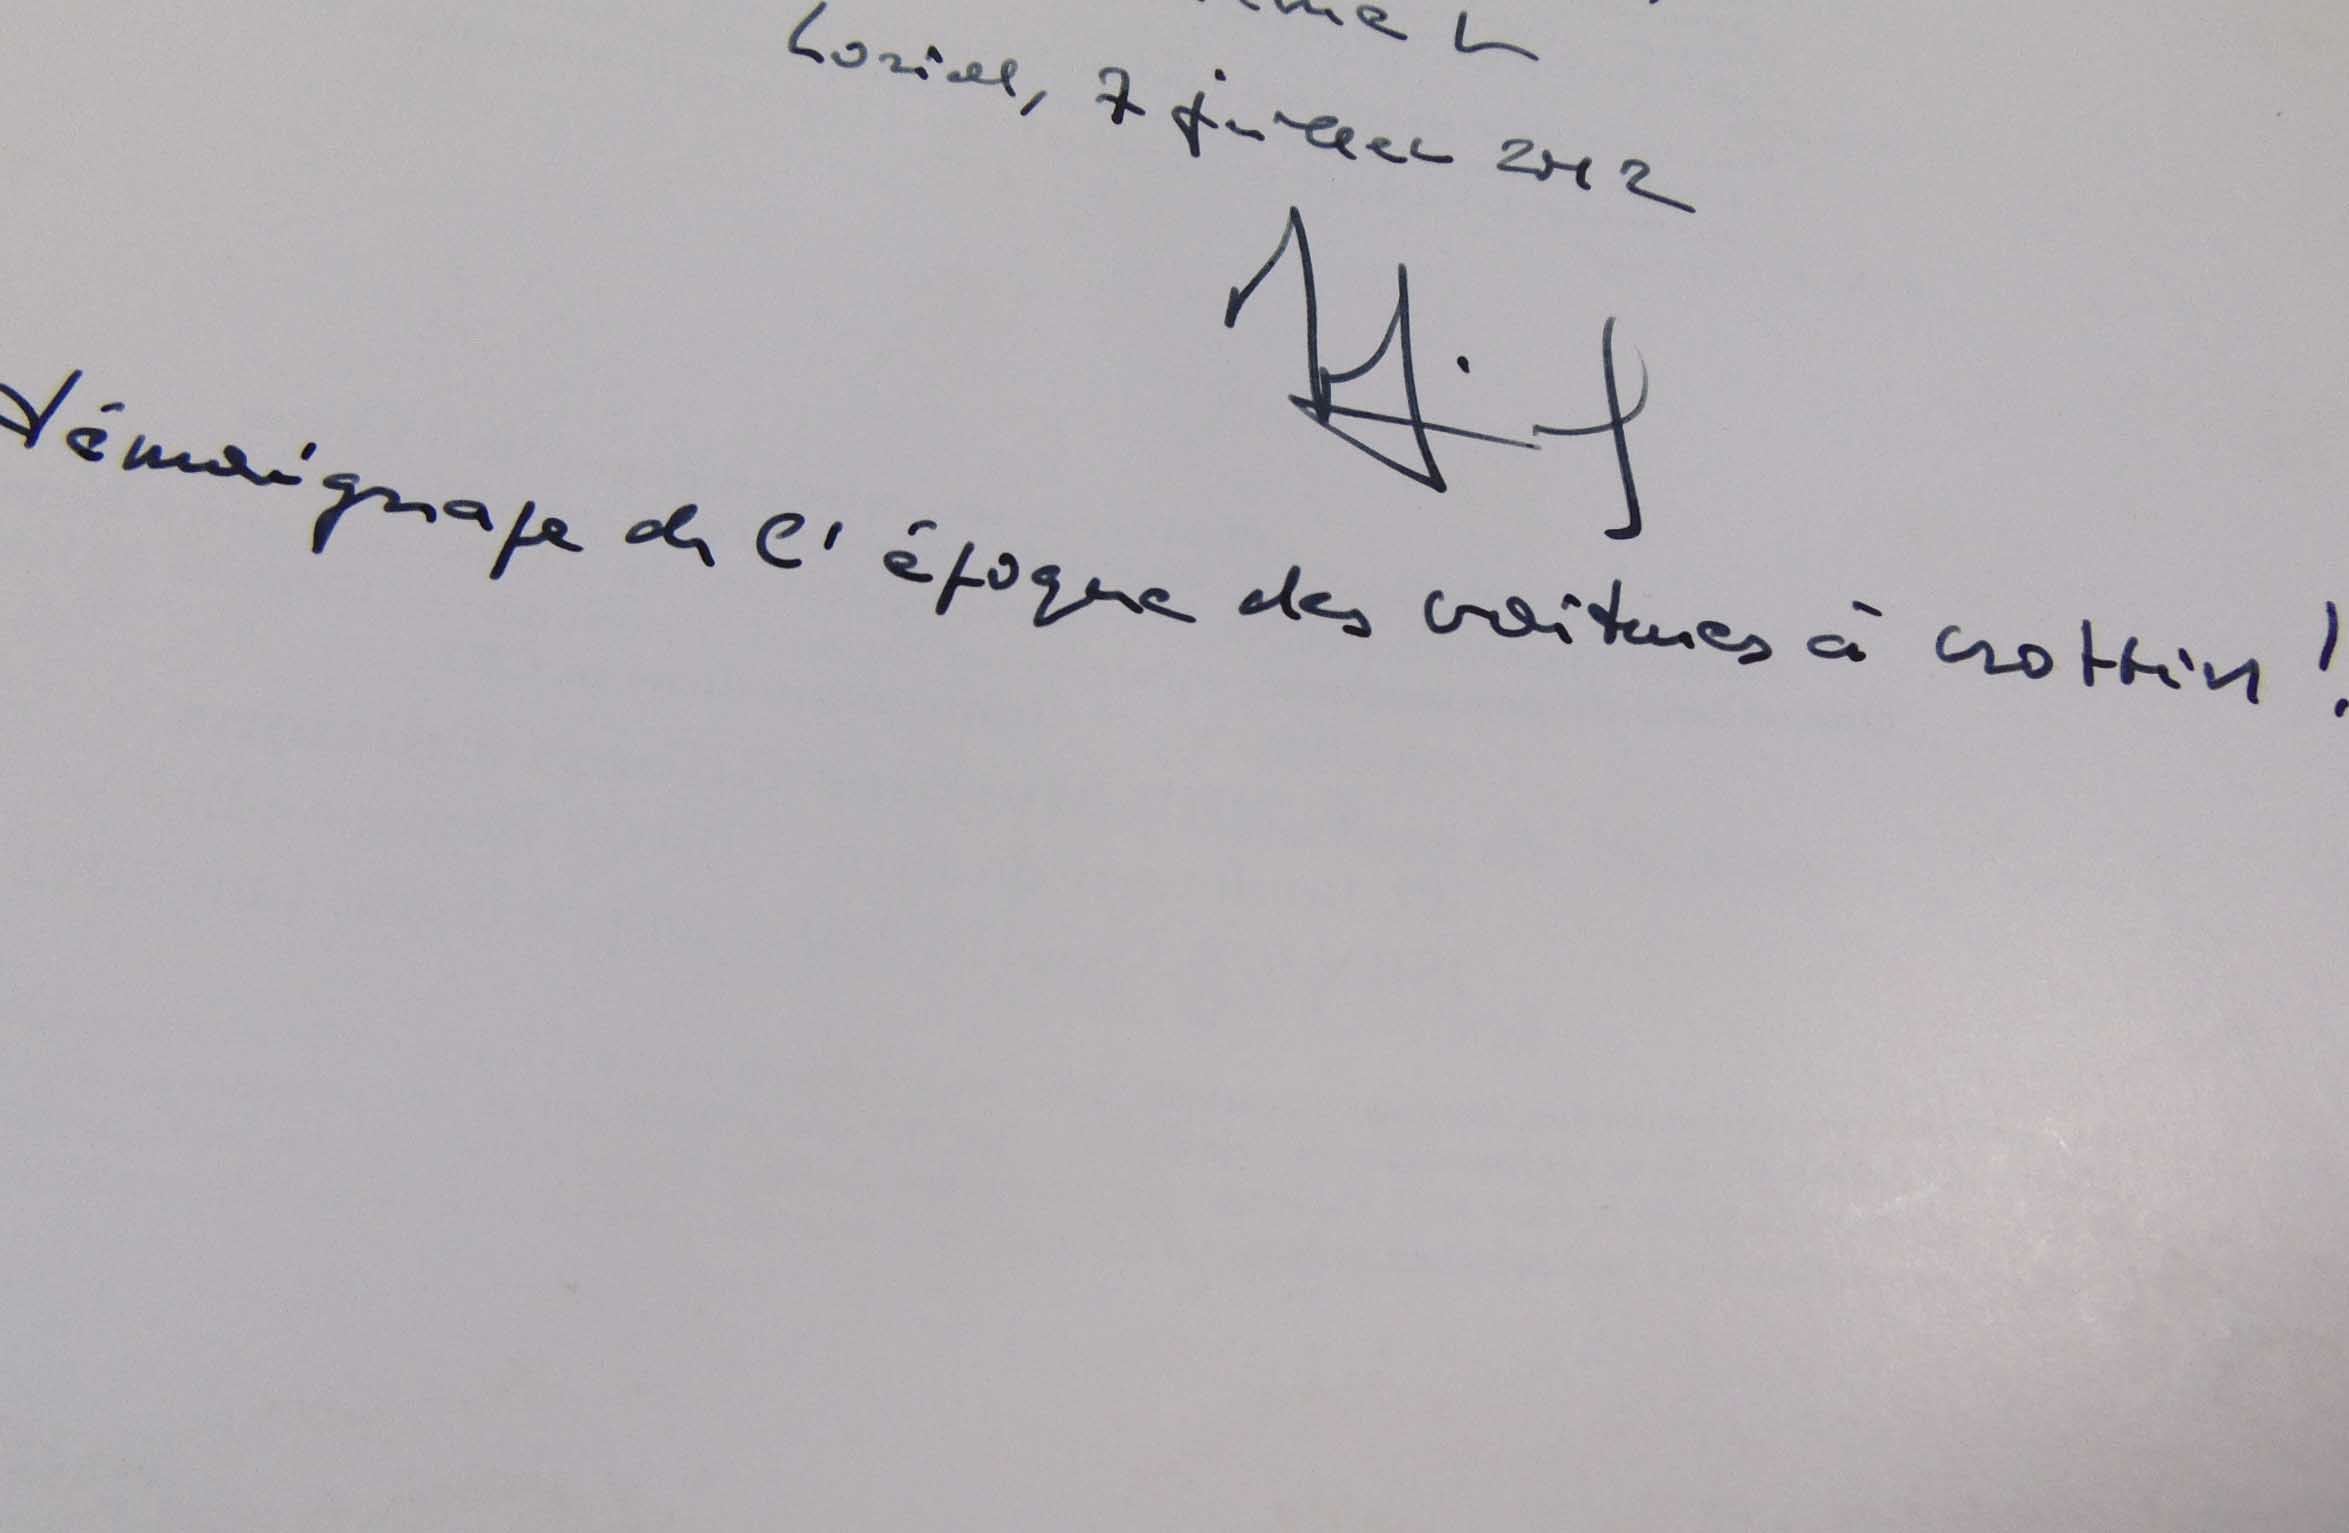 7 juillet 2012
témoignage de l'époque des voitures à crottin !